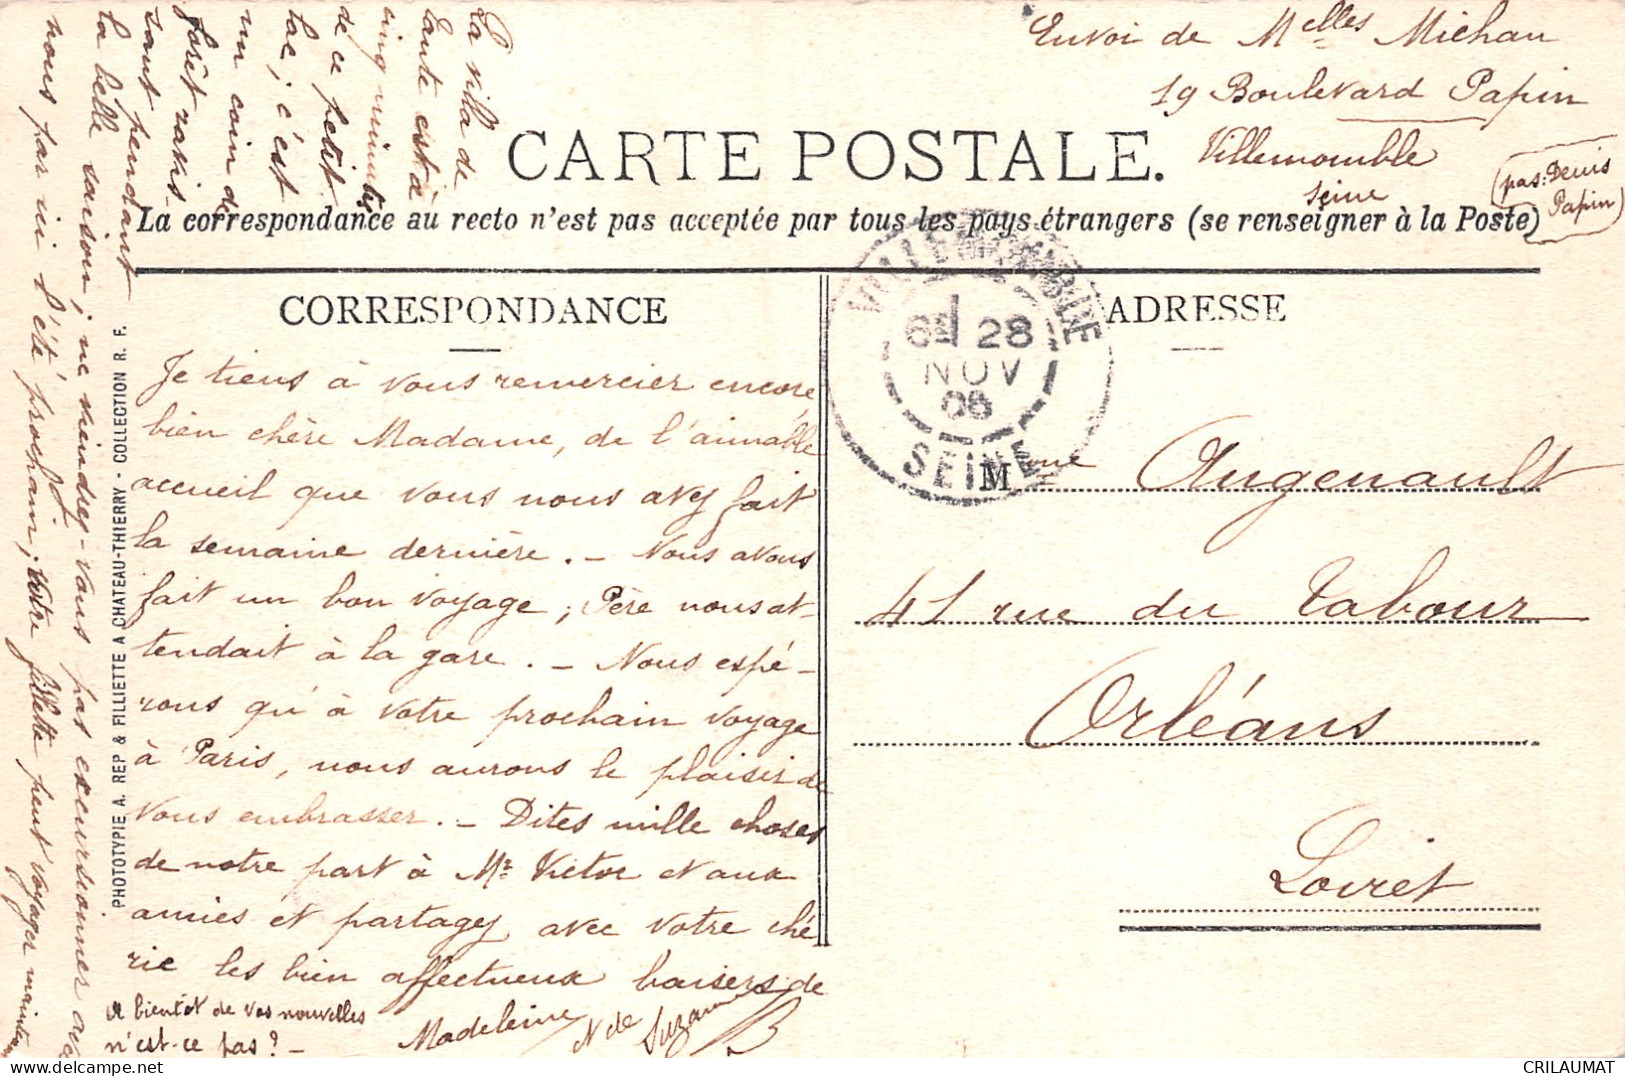 Envoi de Melles Michau
19 Boulevard Papin
Villemomble
Seine
(pas: Denis
Papin)
CARTE POSTALE.
La correspondance au recto n'est pas acceptée par tous les pays étrangers (se renseigner à la Poste)
CORRESPONDANCE
ADRESSE
VILLEMOMBLE
8E 28
NOV
06
SEINE
Je tiens à vous remercier encore
bien chère Madame, de l'aimable
accueil que vous nous avez fait
la semaine dernière. - Nous avons
fait un bon voyage; Père nous at-
tendait à la gare. - Nous espé-
rons qu'à votre prochain voyage
à Paris, nous aurons le plaisir de
vous embrasser. - Dites mille choses
de notre part à Mr Victor et aux
amies et partagez avec votre ché
rie les bien affectueux baisers de
Madeleine et de Suzanne
A bientôt de vos nouvelles
n'est-ce pas? -
Mme Augenault
41 rue du Tabour
Orléans
Loiret
La villa de
tante est à
cinq minutes
de ce petit
lac; c'est
un coin de
forêt ravis-
sant pendant
la belle saison; ne viendrez-vous pas excursionner avec
nous par ici l'été prochain; votre fillette peut voyager mainten
PHOTOTYPIE A. REP & FILLIETTE A CHATEAU-THIERRY - COLLECTION R. F.
CRILAUMAT